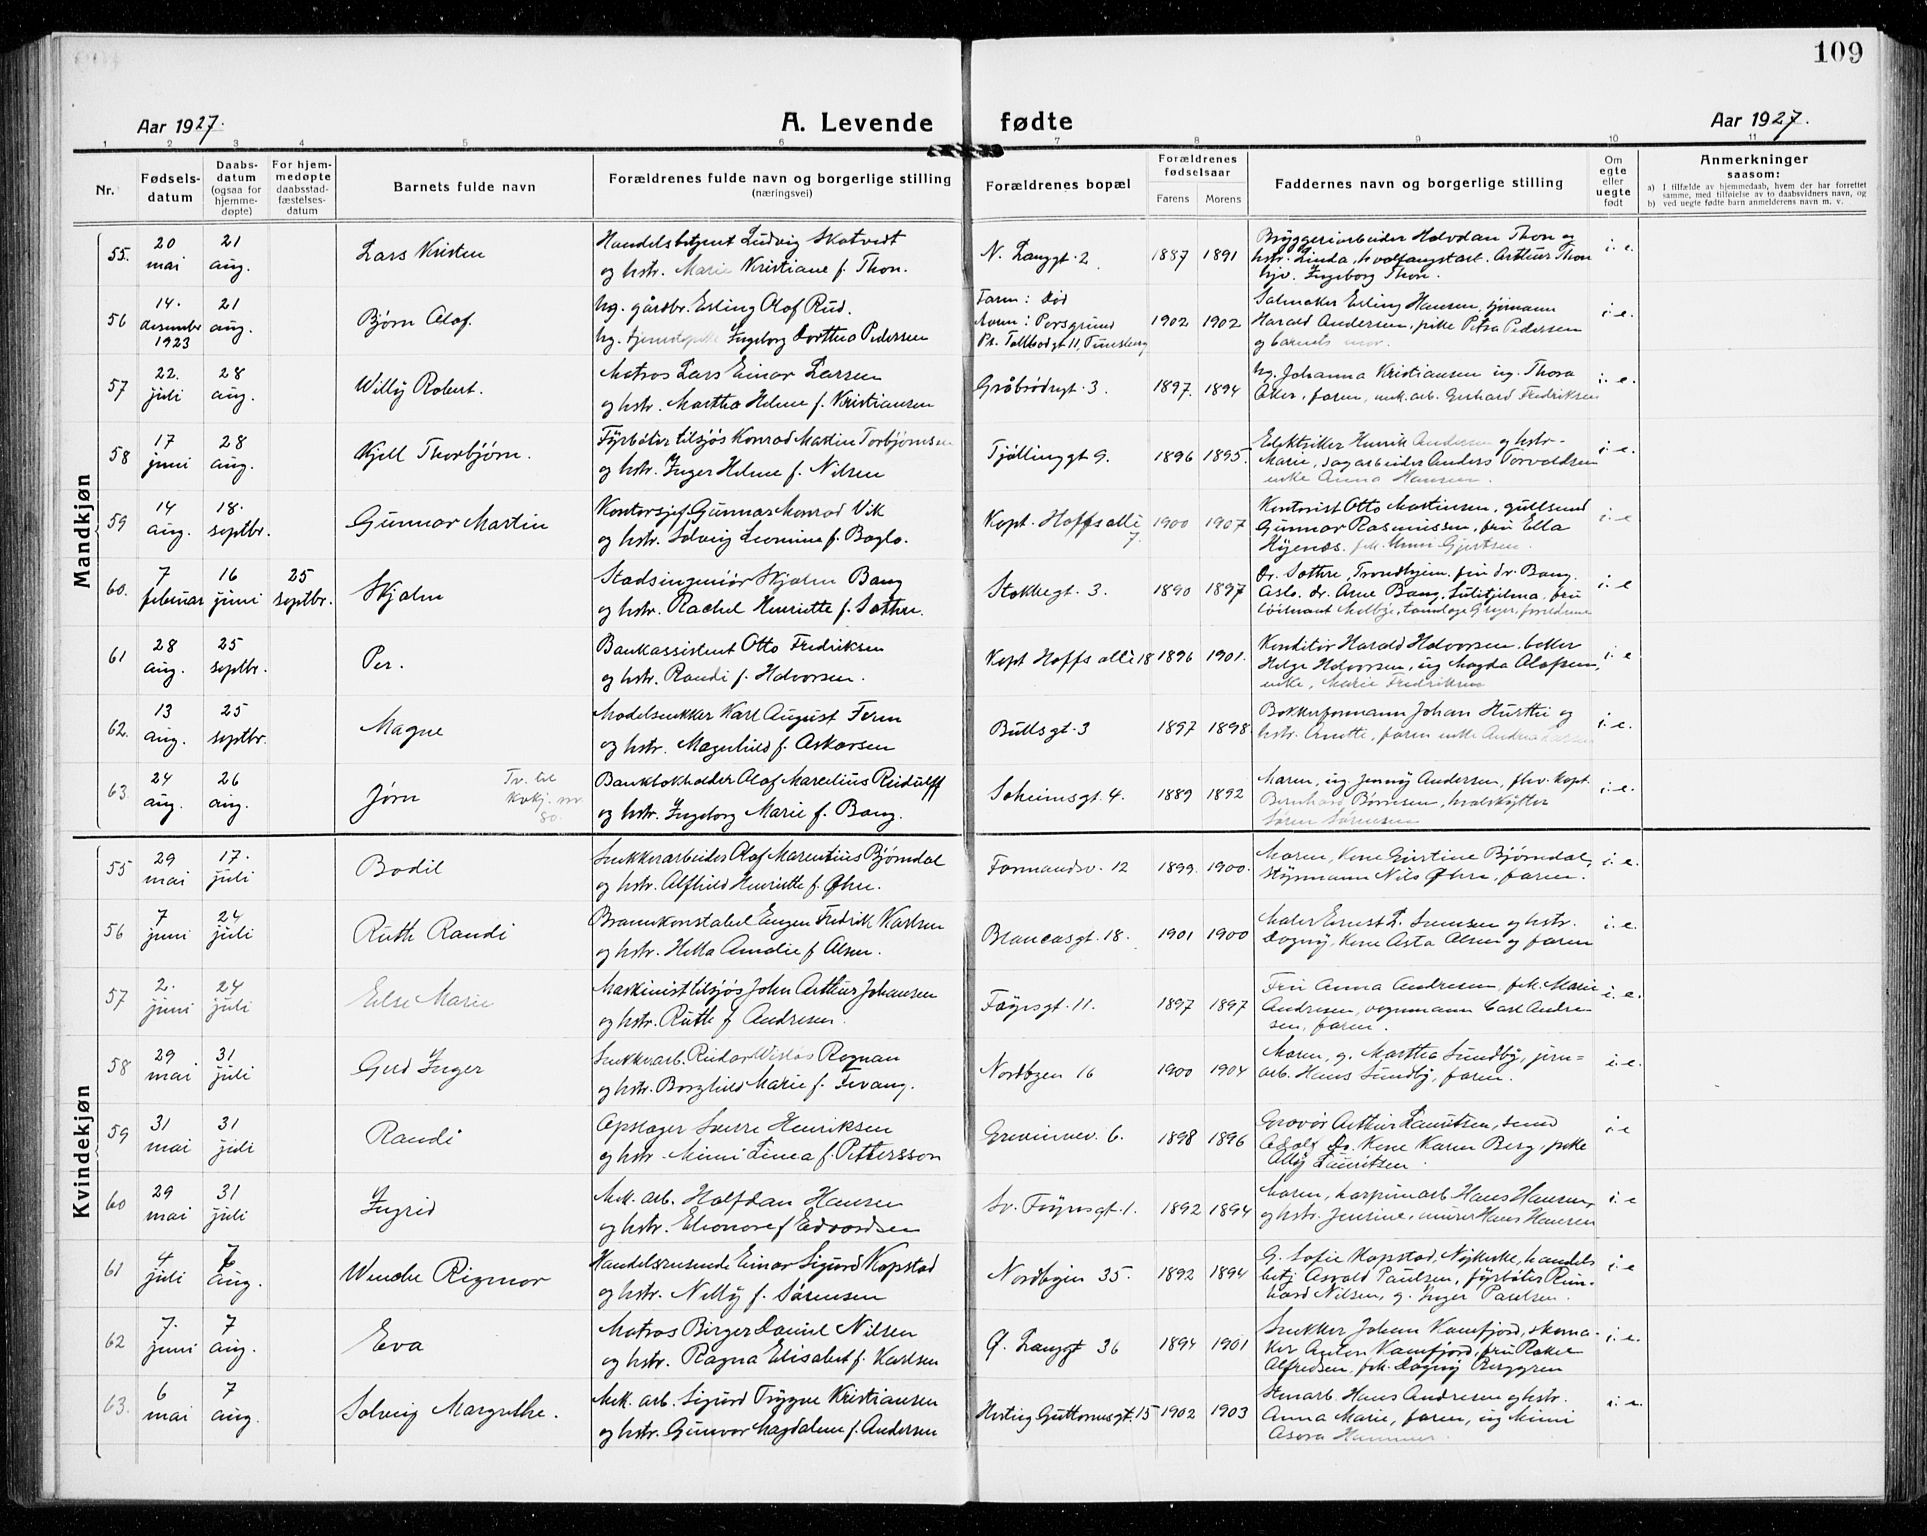 109
Aar 1927.
A. Levende fødte
Aar 1927.
1 2 3 4 5 6 7 8 9 10 11
Nr.
Fødsels-
datum
Daabs-
datum
(ogsaa for
hjemme-
døpte)
For hjem-
medøpte
daabsstad-
fæstelses-
datum
Barnets fulde navn
Forældrenes fulde navn og borgerlige stilling
(næringsvei)
Forældrenes bopæl
Forældrenes
fødselsaar
Farens
Morens
Faddernes navn og borgerlige stilling
Om
egte
eller
uegte
født
Anmerkninger
saasom:
a) I tilfælde av hjemmedaab, hvem der har forrettet
samme, med tilføielse av to daabsvidners navn, og
b) ved uegte fødte barn anmelderens navn m. v.
Mandkjøn
55.
20
mai
21
aug.
Lars Kristen
Handelsbetjent Ludvig Skatvedt
og hstr. Marie Kristiane f. Thon.
N. Langgt. 2
1887
1891
Bryggeriarbeider Halvdan Thon og
hstr. Linda, hvalfangstarb. Arthur Thon
hjv. Ingeborg Thon.
i. e.
56
14.
desember
1923
21
aug.
Bjørn Olaf.
Ug. gårdbr. Erling Olaf Rud.
Ug. tjenestepike Ingeborg Dorthea Pedersen
Faren: død
Moren: Porsgrund
Pr. Tollbodgt 11, Tunsberg
1902
1902
Salmaker Erling Hansen, sjømann
Harald Andersen, pike Petra Pedersen
og barnets mor.
i. e.
57
22.
juli
28
aug.
Willy Robert.
Matros Lars Einar Larsen
og hstr. Martha Helene f. Kristiansen
Gråbrødregt. 3.
1897.
1894
Ug. Johanna Kristiansen ug. Thora
Aker, faren, mek. arb. Gerhard Fredriksen
i. e.
58
17
juni
28
aug.
Kjell Thorbjørn.
Fyrbøter tilsjøs Konrad Martin Torbjørnsen
og hstr. Inger Helene f. Nilsen
Tjøllinggt 9.
1896
1895.
Elektriker Henrik Andersen og hstr.
Marie, sagarbeider Anders Torvaldsen
enke Anna Hansen.
i. e.
59
14
aug.
18.
septbr.
Gunnar Martin
Kontorsjef Gunnar Monrad Vik
og hstr. Solveig Leonine f. Boglo.
Kapt. Hoffs allé
7.
1900
1907
Kontorist Otto Martinsen, gullsmed
Gunnar Rasmussen, fru Ella
Hyenæs. frk. Unni Gjertsen.
i. e
60.
7
februar
16
juni
25
septbr.
Skjalm
Stadsingeniør Skjalm Bang
og hstr. Rachel Henriette f. Sæthre.
Stokkegt. 3.
1890
1897
Dr. Sæthre, Trondhjem. fru dr. Bang.
Oslo. dr. Arne Bang, Sulitjelma, fru
løitnant Melbye, tannlæge Geyer, foreldrene
i. e
61
28
aug.
25
septbr.
Per.
Bankassistent Otto Fredriksen
og hstr. Randi f. Halvorsen.
Kapt Hoffs allé 18
1896
1901.
Konditor Harald Halvorsen. baker
Helge Halvorsen, ug Magda Olafsen,
enke, Marie Fredriksen
i. e
62.
13
aug.
25
septbr.
Magne
Modelsnekker Karl August Ferm
og hstr. Magnhild f. Askarsen
Bullsgt. 3
1897
1898.
Bøkkerformann Johan Hurthi og
hstr. Anette, faren enke Andrea Larsen
i. e.
63
24
aug.
26
aug.
Jørn
Tv. til
Kvkj. nr
80.
Bankbokholder Olaf Marcelius Ridulff
og hstr. Ingeborg Marie f. Bang.
Solheimsgt. 4.
1889
1892
Moren, ug Jenny Andersen, fhv. kapt.
Bernhard Børresen, hvalskytter
Søren Sørensen
i. e.
Kvindekjøn
55
29
mai
17.
juli
Bodil
Snekkerarbeider Olaf Marentius Bjørndal
og hstr. Alfhild Henriette f. Øhre.
Formandsv. 12
1899.
1900.
Moren, Kone Gustine Bjørndal,
styrmann Nils Øhre, faren.
i. e.
56
7
juni
24
juli
Ruth Randi
Brannkonstabel Eugen Fredrik Karlsen
og hstr. Hella Amalie f Olsen.
Brancasgt. 18.
1901
1900
Maler Ernest L. Svensen og hstr.
Dagny, Kone Asta Olsen og faren
i. e.
57
2.
juni
24
juli
Else Marie
Maskinist tilsjøs John Arthur Johansen
og hstr. Ruth f Andresen.
Føynsgt. 11.
1897
1897
Fru Anna Andresen, frk. Marie
Andresen, vognmann Carl Andre-
sen, faren.
i. e.
58
29
mai
31
juli
Gerd Inger
Snekkerarb. Reidar Wisløs Rognan
og hstr. Borghild Marie f. Tevang.
Nordbyen 16
1900
1904
Moren, g. Martha Sundby, jern-
arb. Hans Sundby, faren.
i. e.
59
31
mai
31
juli
Randi
Opslager Sverre Henriksen
og hstr. Mimi Linea f. Pettersson
Grevinnev. 6.
1898
1896
Gravør Arthur Lauritsen, smed
Adolf Do. Kone Karen Berg, pike
Ally Lauritsen.
i e
60
29
mai
31
juli
Ingrid
Mek. arb. Halfdan Hansen
og hstr. Elenore f Edvardsen
Sv. Føynsgt. 1.
1892
1894
Moren, harpunarb Hans Hansen,
og hstr. Jensine, murer Hans Hansen
i. e
61
4
juli
7
aug.
Wenche Rigmor
Handelsreisende Einar Sigurd Kopstad
og hstr. Nelly f. Sørensen
Nordbyen 35.
1892
1894
G. Sofie Kopstad, Nykirke, handels
betj Asvald Paulsen, fyrbøter Rein-
hard Nilsen, g. Inger Paulsen.
i. e
62
7.
juni
7
aug.
Eva
Matros Birger Daniel Nilsen
og hstr. Ragna Elisabet f. Karlsen
Ø. Langgt 36
1894
1901
Snekker Johan Kamfjord, skoma-
ker Anton Kamfjord, fru Rakel
Alfredsen, frk. Dagny Berggren
i. e.
63.
6
mai
7
aug.
Solveig Margrethe.
Mek. arb. Sigurd Trygve Kristiansen
og hstr. Gunvor Magdalene f. Andersen
Hertug Guttormsgt. 15
1902
1903
Stenarb. Hans Andresen og hstr.
Anna Marie, faren, ug Mimi
Asora Hammer.
i. e.